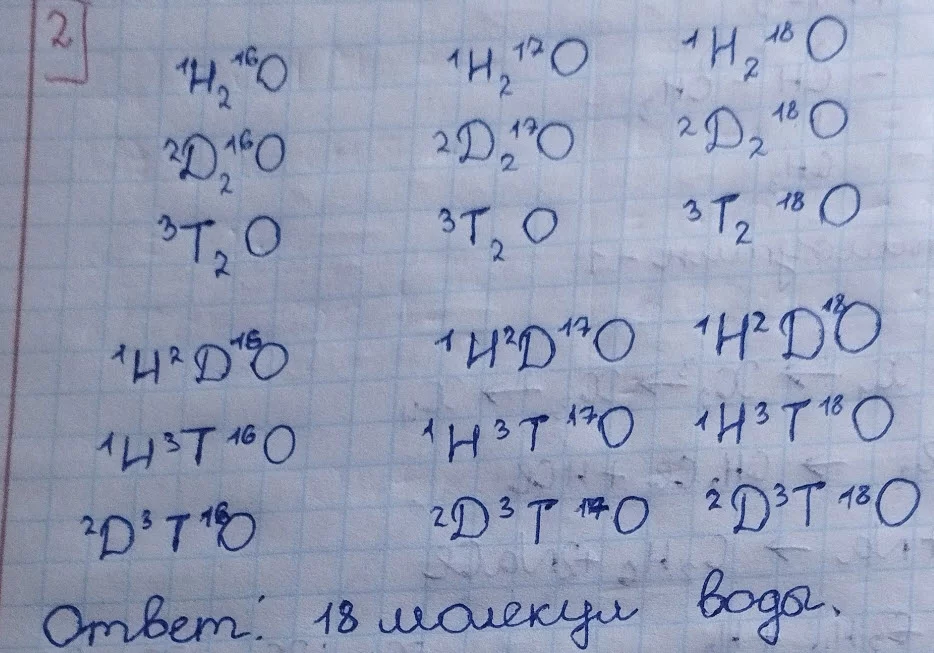 2
¹H₂¹⁶O ¹H₂¹⁷O ¹H₂¹⁸O
²D₂¹⁶O ²D₂¹⁷O ²D₂¹⁸O
³T₂O ³T₂O ³T₂¹⁸O
¹H²D¹⁶O ¹H²D¹⁷O ¹H²D¹⁸O
¹H³T¹⁶O ¹H³T¹⁷O ¹H³T¹⁸O
²D³T¹⁶O ²D³T¹⁷O ²D³T¹⁸O
Ответ: 18 молекул воды.